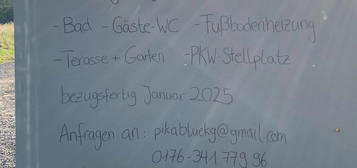 - Bad - Gäste-WC - Fußbodenheizung
- Terasse + Garten - PKW-Stellplatz
bezugsfertig Januar 2025
Anfragen an: pikabluekg@gmail.com
0176-341 779 96